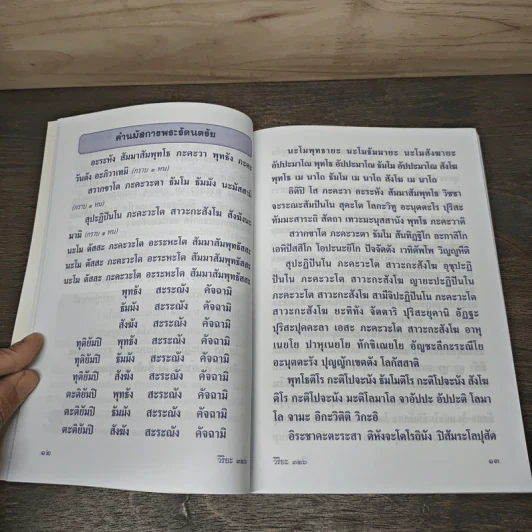 คำนมัสการพระรัตนตรัย
อะระหัง สัมมาสัมพุทโธ ภะคะวา พุทธัง ภะคะ
วันตัง อะภิวาเทมิ (กราบ ๑ หน)
สวากขาโต ภะคะวะตา ธัมโม ธัมมัง นะมัสสามิ
(กราบ ๑ หน)
สุปะฏิปันโน ภะคะวะโต สาวะกะสังโฆ สังฆังนะ
มามิ (กราบ ๑ หน)
นะโม ตัสสะ ภะคะวะโต อะระหะโต สัมมาสัมพุทธัสสะ
นะโม ตัสสะ ภะคะวะโต อะระหะโต สัมมาสัมพุทธัสสะ
นะโม ตัสสะ ภะคะวะโต อะระหะโต สัมมาสัมพุทธัสสะ
พุทธัง สะระณัง คัจฉามิ
ธัมมัง สะระณัง คัจฉามิ
สังฆัง สะระณัง คัจฉามิ
ทุติยัมปิ พุทธัง สะระณัง คัจฉามิ
ทุติยัมปิ ธัมมัง สะระณัง คัจฉามิ
ทุติยัมปิ สังฆัง สะระณัง คัจฉามิ
ตะติยัมปิ พุทธัง สะระณัง คัจฉามิ
ตะติยัมปิ ธัมมัง สะระณัง คัจฉามิ
ตะติยัมปิ สังฆัง สะระณัง คัจฉามิ
๑๒ วิริยะ ๓๒๖
นะโมพุทธายะ นะโมธัมมายะ นะโมสังฆายะ
อัปปะมาโณ พุทโธ อัปปะมาโณ ธัมโม อัปปะมาโณ สังโฆ
พุทโธ เม นาโถ ธัมโม เม นาโถ สังโฆ เม นาโถ
อิติปิ โส ภะคะวา อะระหัง สัมมาสัมพุทโธ วิชชา
จะระณะสัมปันโน สุคะโต โลกะวิทู อะนุตตะโร ปุริสะ
ทัมมะสาระถิ สัตถา เทวะมะนุสสานัง พุทโธ ภะคะวาติ
สวากขาโต ภะคะวะตา ธัมโม สันทิฏฐิโก อะกาลิโก
เอหิปัสสิโก โอปะนะยิโก ปัจจัตตัง เวทิตัพโพ วิญญูหีติ
สุปะฏิปันโน ภะคะวะโต สาวะกะสังโฆ อุชุปะฏิ
ปันโน ภะคะวะโต สาวะกะสังโฆ ญายะปะฏิปันโน
ภะคะวะโต สาวะกะสังโฆ สามีจิปะฏิปันโน ภะคะวะโต
สาวะกะสังโฆ ยะทิทัง จัตตาริ ปุริสะยุคานิ อัฏฐะ
ปุริสะปุคคะลา เอสะ ภะคะวะโต สาวะกะสังโฆ อาหุ
เนยโย ปาหุเนยโย ทักขิเณยโย อัญชะลีกะระณีโย
อะนุตตะรัง ปุญญักเขตตัง โลกัสสาติ
พุทโธติโร กะติโปจะนัง ธัมโมติโร กะติโปจะนัง สังโฆ
ติโร กะติโปจะนัง มะติโลมาโล จาอัปปะ อัปปะติ โลมา
โล จามะ อิกะวิติติ วิกะอิ
อิระชาคะตะระสา ติหังจะโตโรถินัง ปิสัมระโลปุสัต
วิริยะ ๓๒๖ ๑๓